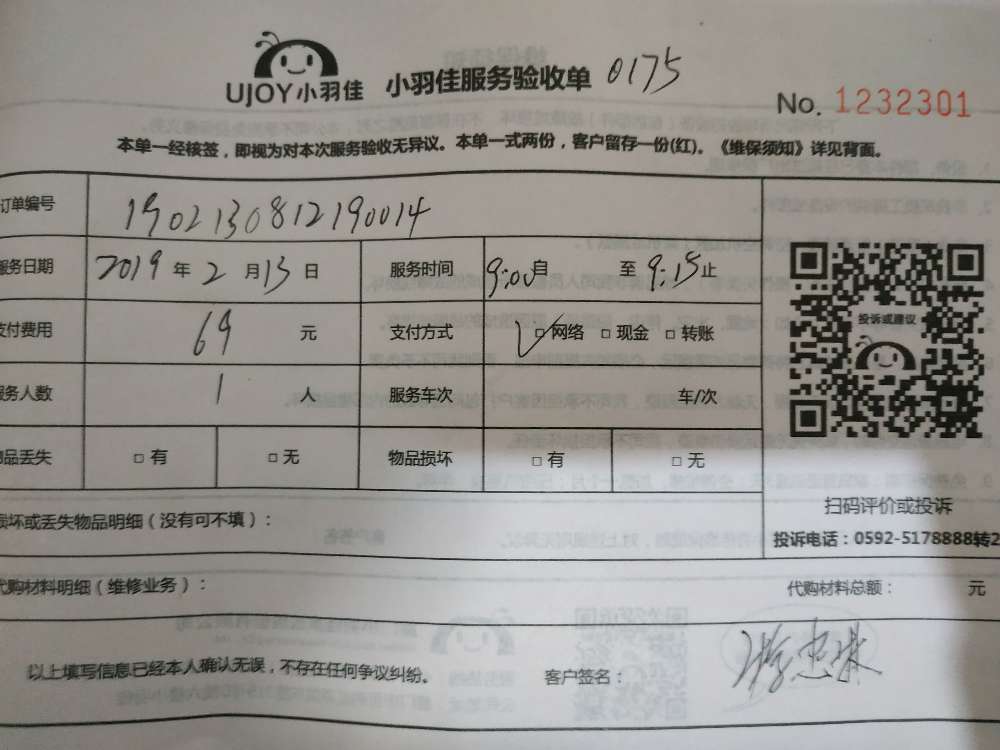 UJOY小羽佳 小羽佳服务验收单 0175
No. 1232301
本单一经核签，即视为对本次服务验收无异议。本单一式两份，客户留存一份(红)。《维保须知》详见背面。
订单编号 1902130812190014
服务日期 2019 年 2 月 13 日 服务时间 9:00 自 至 9:15 止
投诉或建议
支付费用 69 元 支付方式 ☑ 网络 □ 现金 □ 转账
服务人数 1 人 服务车次 车/次
物品丢失 □ 有 □ 无 物品损坏 □ 有 □ 无
扫码评价或投诉
损坏或丢失物品明细（没有可不填）：
投诉电话：0592-5178888转2
代购材料明细（维修业务）： 代购材料总额： 元
以上填写信息已经本人确认无误，不存在任何争议纠纷。 客户签名：